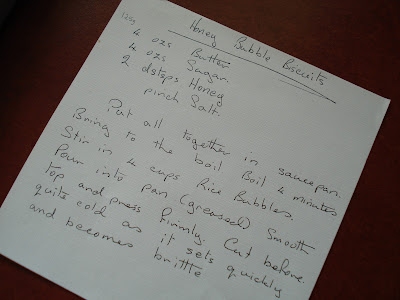 Honey Bubble Biscuits
125g
4 ozs Butter
4 ozs Sugar
2 dstsps Honey
pinch Salt.
Put all together in saucepan.
Bring to the boil Boil 4 minutes
Stir in 4 cups Rice Bubbles.
Pour into pan (greased) Smooth
top and press firmly. Cut before
quite cold as it sets quickly
and becomes brittle